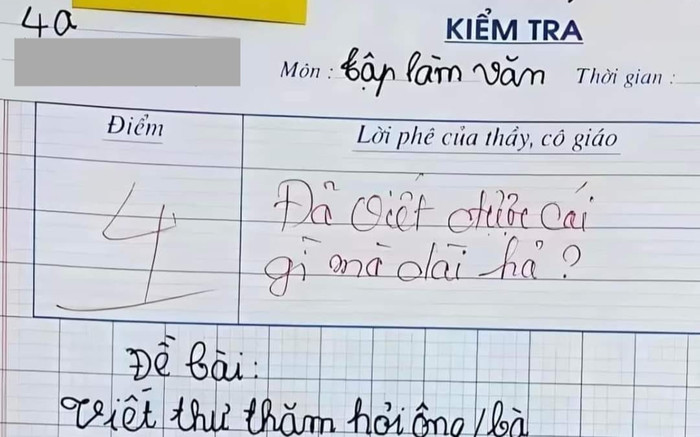 4a
KIỂM TRA
Môn : tập làm văn Thời gian :
Điểm
Lời phê của thầy, cô giáo
4
Đã viết được cái
gì mà dài hả ?
Đề bài:
Viết thư thăm hỏi ông/bà